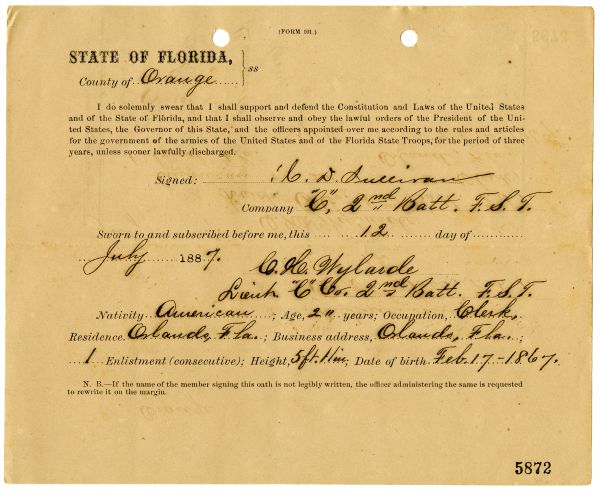 (FORM 101.)
STATE OF FLORIDA,
ss
County of Orange
I do solemnly swear that I shall support and defend the Constitution and Laws of the United States
and of the State of Florida, and that I shall observe and obey the lawful orders of the President of the Uni-
ted States, the Governor of this State, and the officers appointed over me according to the rules and articles
for the government of the armies of the United States and of the Florida State Troops, for the period of three
years, unless sooner lawfully discharged.
Signed: C. D. Sullivan
Company "C", 2nd Batt. F. S. T.
Sworn to and subscribed before me, this 12 day of
July 1887.
C. H. Wylarde
Lieut "C" Co. 2nd Batt. F. S. T.
Nativity American; Age, 20 years; Occupation, Clerk,
Residence. Orlando, Fla.; Business address, Orlando, Fla.;
1 Enlistment (consecutive); Height, 5 ft. 11 in; Date of birth Feb. 17-1867.
N. B.—If the name of the member signing this oath is not legibly written, the officer administering the same is requested
to rewrite it on the margin.
5872